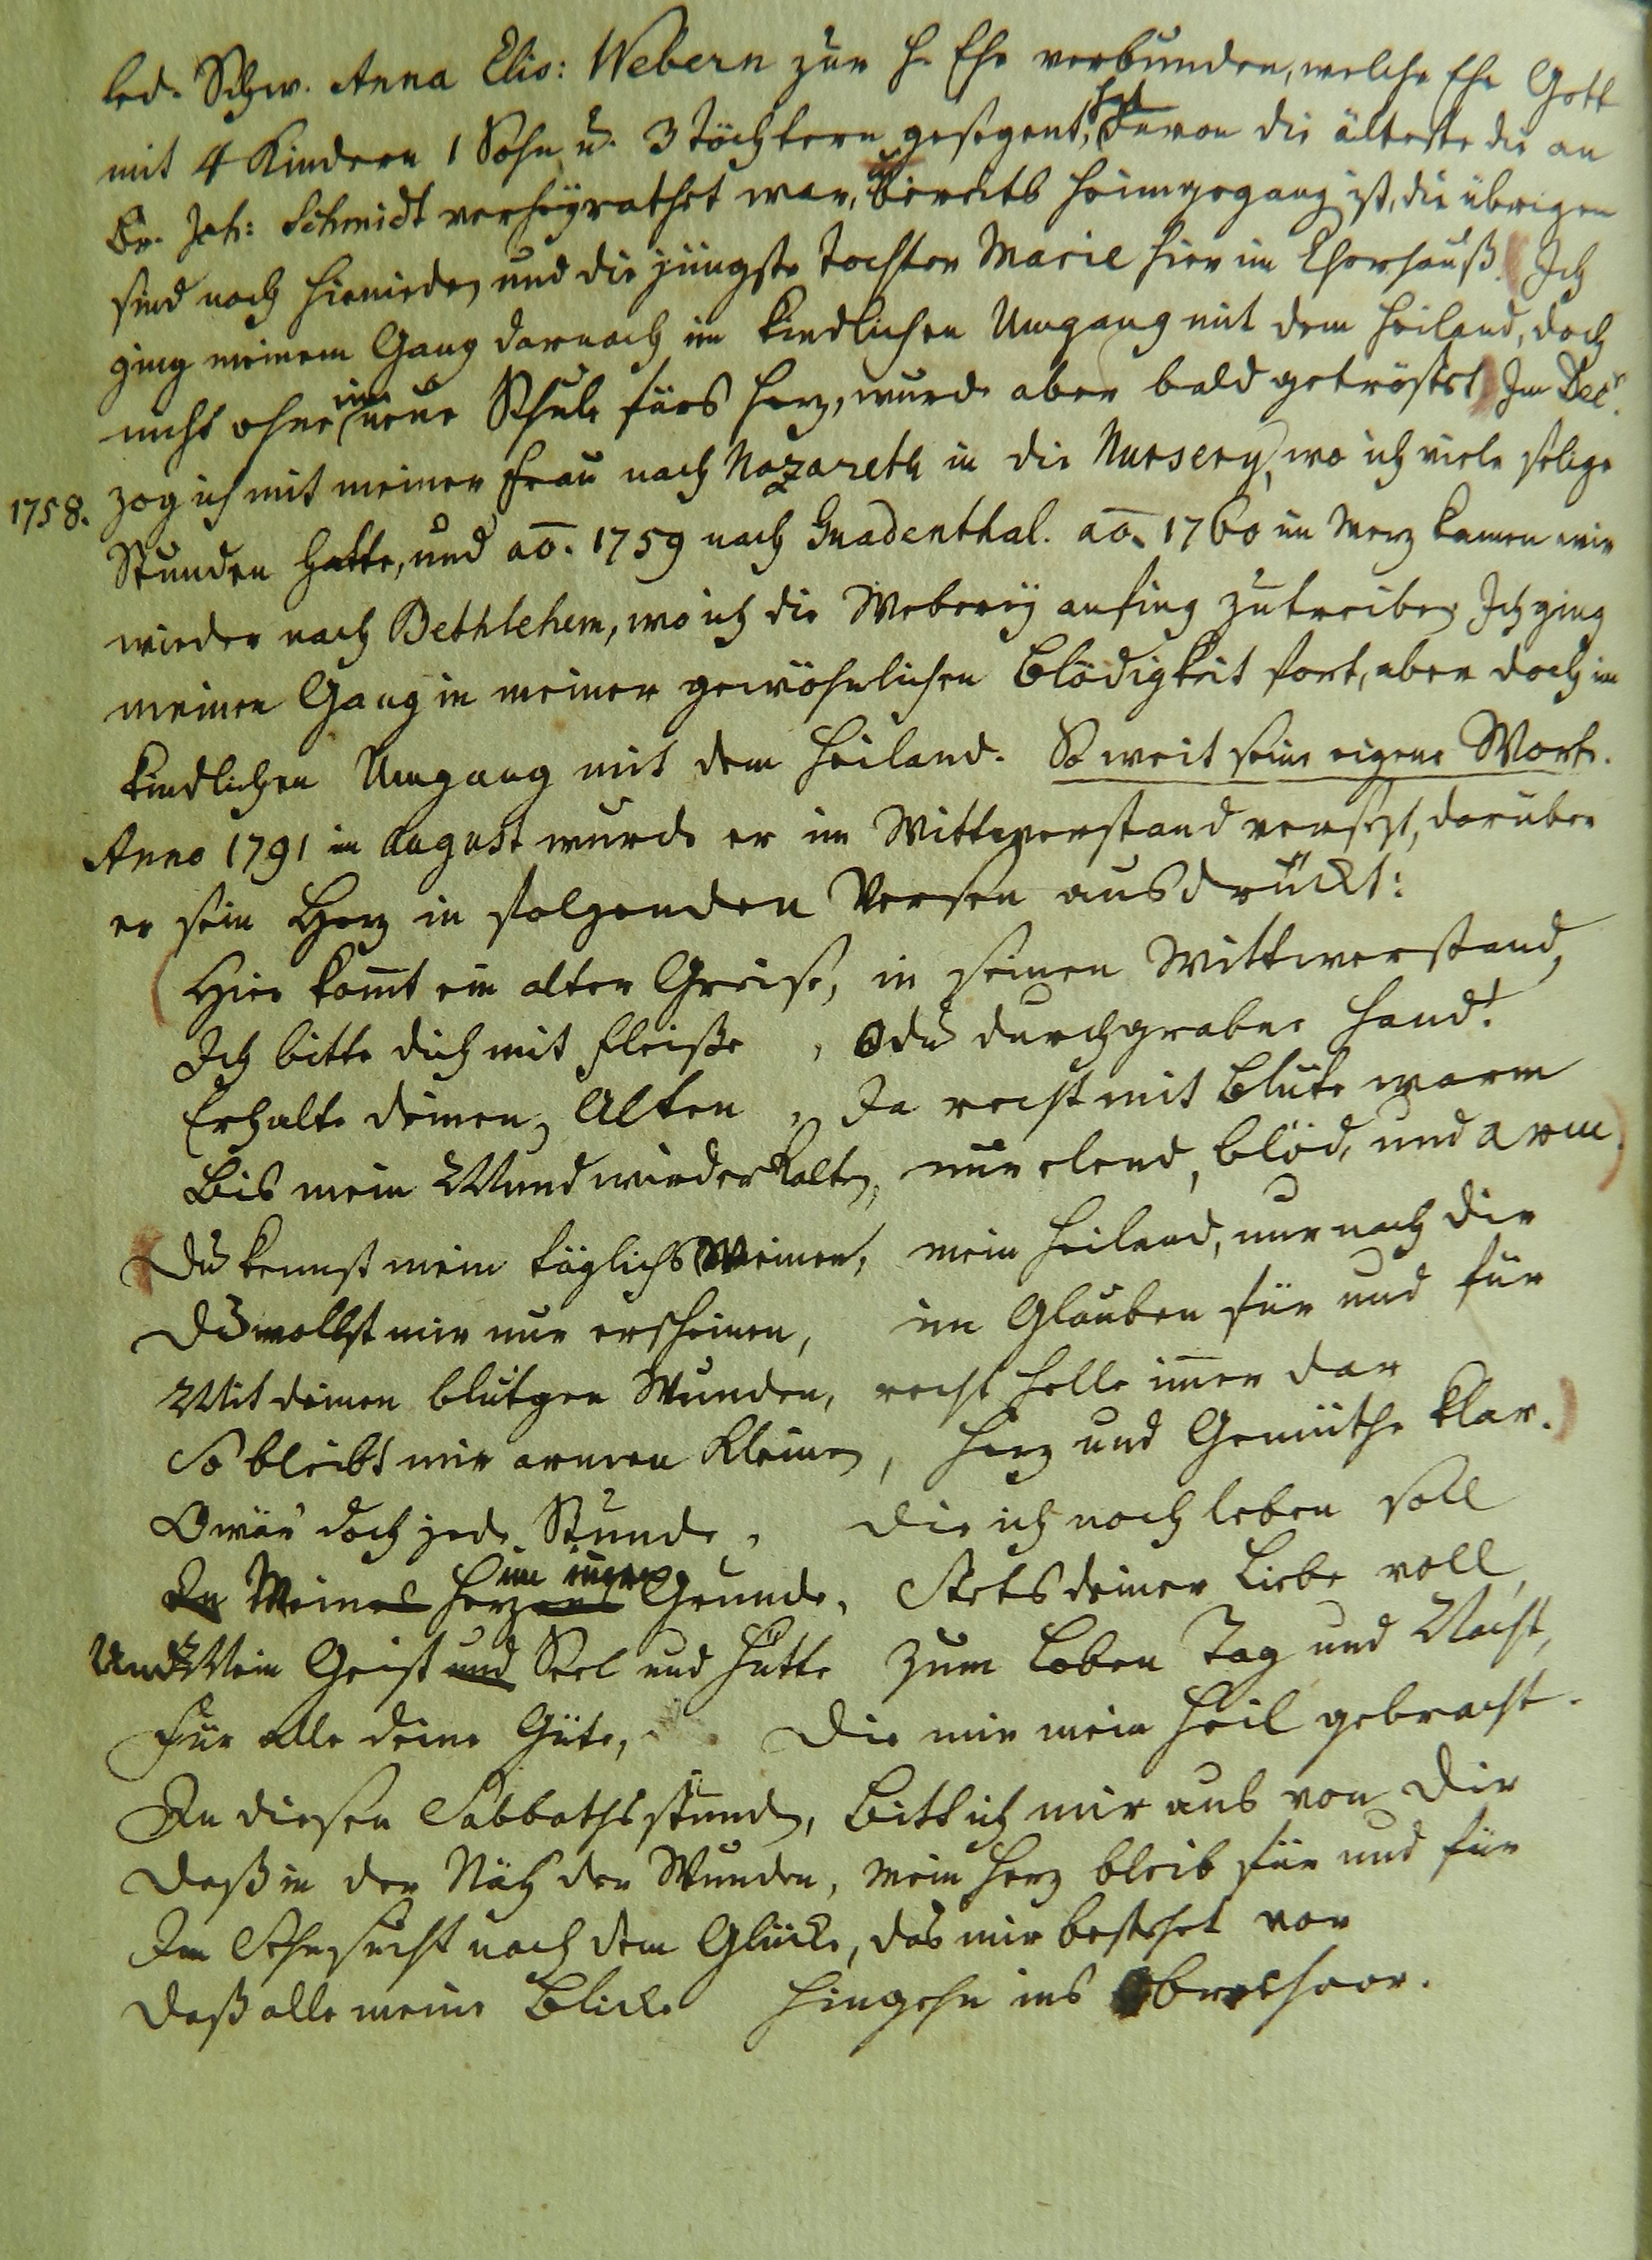 led. Schw. Anna Elis: Webern zur h. Ehe verbunden, welche Ehe Gott
mit 4 Kindern 1 Sohn u. 3 Töchtern gesegent, hat davon die älteste die an
Br. Joh: Schmidt verheÿrathet war, bereits heimgegang ist, die übrigen
sind noch hienieden und die jüngste Tochter Marie hier im Chorhauß. Ich
ging meinem Gang darnach im kindlichen Umgang mit dem Heiland, doch
nicht ohne eine neue Schule fürs Herz, wurde aber bald getröstet. Im Decr.
1758. zog ich mit meiner Frau nach Nazareth in die Nursery, wo ich viele selige
Stunden hatte, und ao. 1759 nach Gnadenthal. ao. 1760 im Merz kamen wir
wieder nach Bethlehem, wo ich die Weberey anfing zu treiben. Ich ging
meinen Gang in meiner gewöhnlichen Blödigkeit fort, aber doch im
kindlichen Umgang mit dem Heiland. So weit seine eigene Worte.
Anno 1791 im August wurde er im Wittwerstand versezt, darüber
er sein Herz in folgenden Versen ausdrückt:
(Hier komt ein alter Greise, in seinen Wittwerstand,
Ich bitte dich mit Fleiße, O du durchgrabne Hand!
Erhalte deinen Alten, Ja recht mit Blute warm
Bis mein Mund wieder kalten, nur elend, blöd, und arm.)
Du kennst mein täglichs Weinen, mein Heiland, nur nach dir
Du wollst mir nur erscheinen, im Glauben für und für
Mit deinen blutgen Wunden, recht helle imer dar
So bleibt mir armen Kleinen, Herz und Gemüthe klar.)
O wär doch jede Stunde, die ich noch leben soll
In Meines Herzens im inern Grunde, Stets deiner Liebe voll,
Und Mein Geist und Seel und Hütte zum Loben Tag und Nacht,
Für alle deine Güte, Die mir mein Heil gebracht.
In diesen Sabbathsstunden, Bitt ich mir aus von Dir
Daß in der Näh der Wunden, Mein Herz bleib für und für
Im Sehnsucht nach dem Glücke, das mir bestehet vor
Daß alle meine Blicke Hingehn ins Obrechoor.